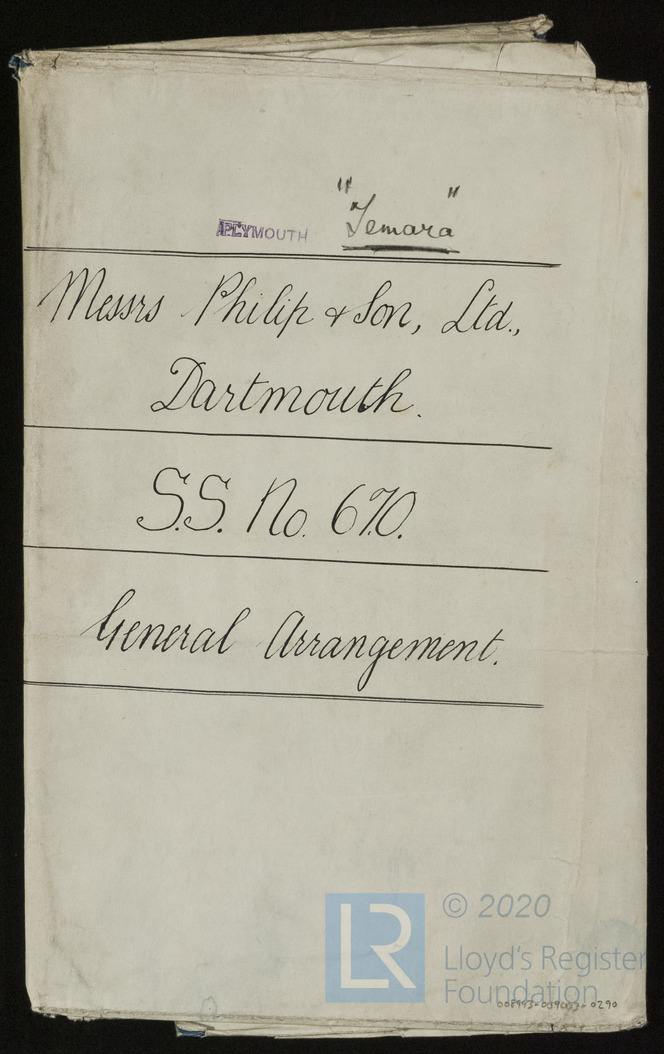 "Temara"
PLYMOUTH
Messrs Philip & Son, Ltd.,
Dartmouth.
S.S. No. 670.
General Arrangement.
LR
© 2020
Lloyd's Register
Foundation